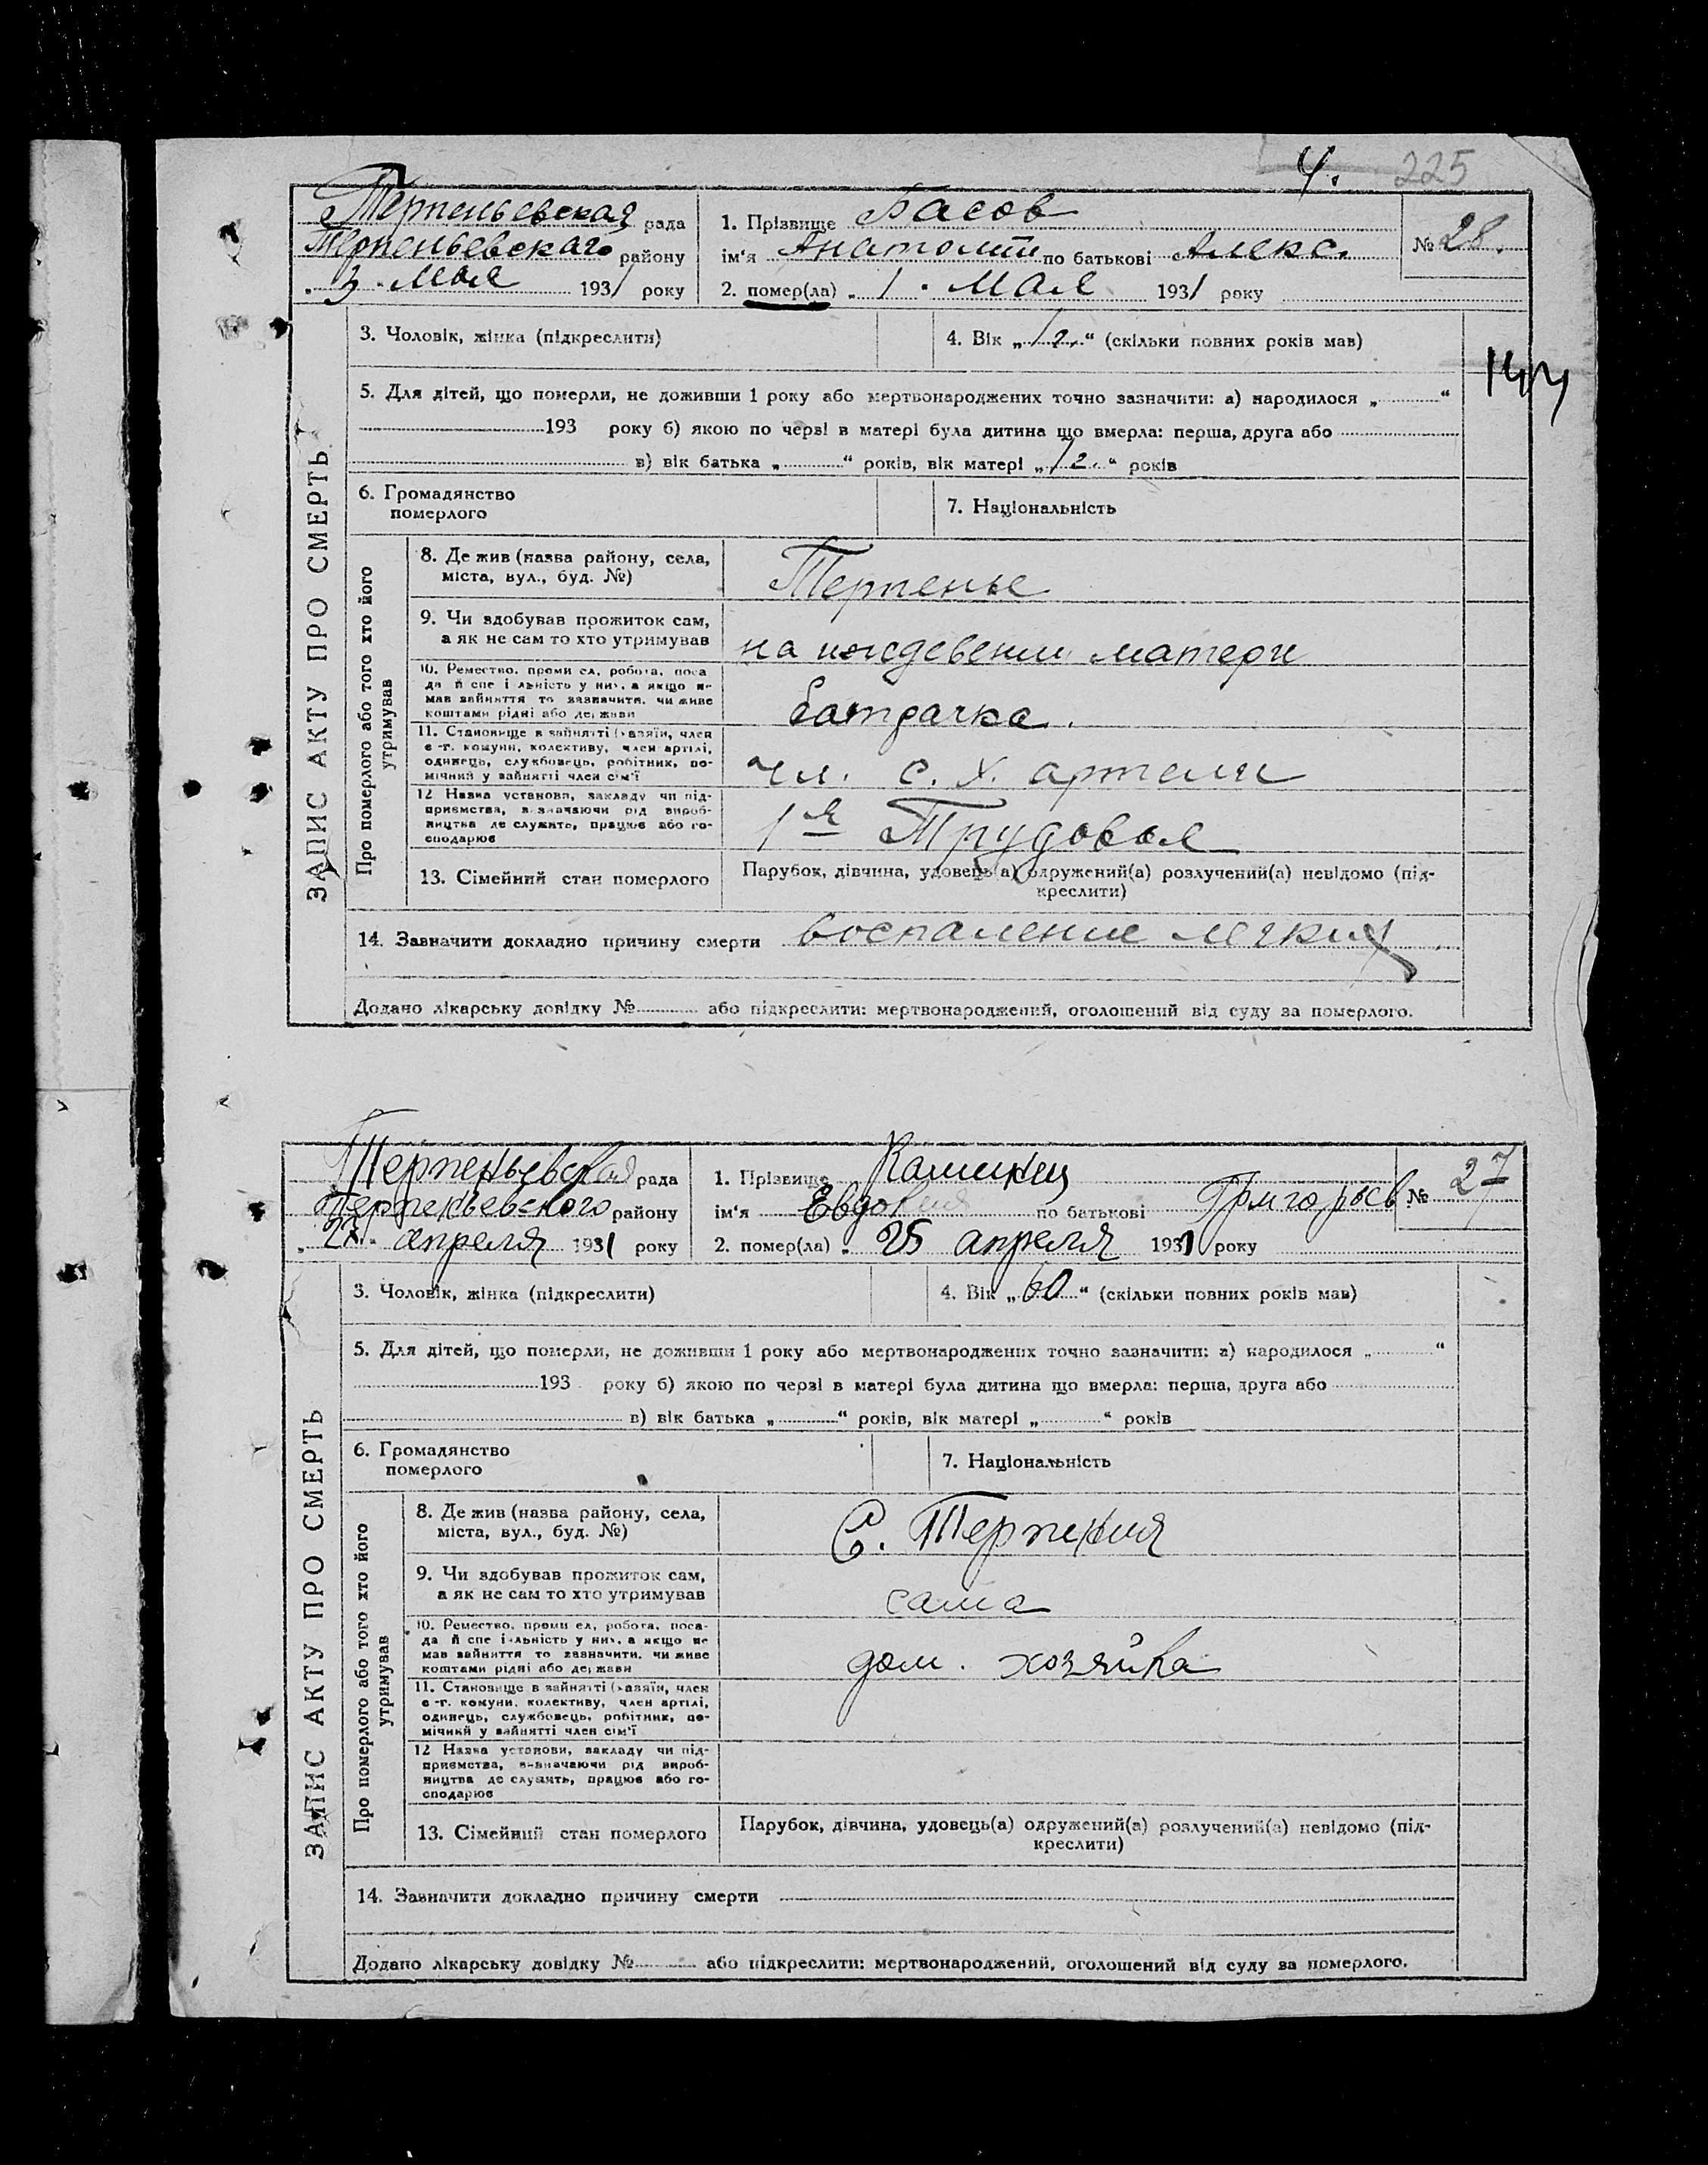 4. 225
Терпеньевская рада
Терпеньевскаго району
„3„ мая 1931 року
1. Прізвище Басов
ім'я Анатолий по батькові Алекс.
2. помер(ла) „1„ мая 1931 року
№ 28.
ЗАПИС АКТУ ПРО СМЕРТЬ
3. Чоловік, жінка (підкреслити)
4. Вік „12.“ (скільки повних років мав)
144
5. Для дітей, що померли, не доживши 1 року або мертвонароджених точно зазначити: а) народилося „ “
193 року б) якою по черзі в матері була дитина що вмерла: перша, друга або
в) вік батька „ “ років, вік матері „12.“ років
6. Громадянство
померлого
7. Національність
Про померлого або того хто його
утримував
8. Де жив (назва району, села,
міста, вул., буд. №)
Терпенье
9. Чи здобував прожиток сам,
а як не сам то хто утримував
на иждевении матери
10. Ремество, проми ел, робота, поса
да й спе і льність у них, а якщо не
мав зайняття то зазначити, чи живе
коштами рідні або держави
батрачка.
11. Становище в зайнятті (хазяїн, член
с-г. комуни, колективу, член артілі,
одинець, службовець, робітник, по-
мічний у зайнятті член сім'ї
чл. с. х. артели
12 Назва установи, закладу чи під-
приємства, визначаючи рід вироб-
ництва де служить, працює або го-
сподарює
1я Трудовая
13. Сімейний стан померлого
Парубок, дівчина, удовець(а) одружений(а) розлучений(а) невідомо (під-
креслити)
14. Зазначити докладно причину смерти воспаление легких
Додано лікарську довідку № або підкреслити: мертвонароджений, оголошений від суду за померлого.
Терпеньевская рада
Терпеньевского району
„27„ апреля 1931 року
1. Прізвище Калинец
ім'я Евдокия по батькові Григорьев
2. помер(ла) „25 апреля 1931 року
№ 27
ЗАПИС АКТУ ПРО СМЕРТЬ
3. Чоловік, жінка (підкреслити)
4. Вік „60“ (скільки повних років мав)
5. Для дітей, що померли, не доживши 1 року або мертвонароджених точно зазначити: а) народилося „ “
193 року б) якою по черзі в матері була дитина що вмерла: перша, друга або
в) вік батька „ “ років, вік матері „ “ років
6. Громадянство
померлого
7. Національність
Про померлого або того хто його
утримував
8. Де жив (назва району, села,
міста, вул., буд. №)
С. Терпения
9. Чи здобував прожиток сам,
а як не сам то хто утримував
сама
10. Ремество, проми ел, робота, поса-
да й спе і альність у них, а якщо не
мав зайняття то зазначити, чи живе
коштами рідні або держави
дом. хозяйка
11. Становище в зайнятті (хазяїн, член
с-г. комуни, колективу, член артілі,
одинець, службовець, робітник, по-
мічний у зайнятті член сім'ї
12 Назва установи, закладу чи під-
приємства, визначаючи рід вироб-
ництва де служить, працює або го-
сподарює
13. Сімейний стан померлого
Парубок, дівчина, удовець(а) одружений(а) розлучений(а) невідомо (під-
креслити)
14. Зазначити докладно причину смерти
Додано лікарську довідку № або підкреслити: мертвонароджений, оголошений від суду за померлого.